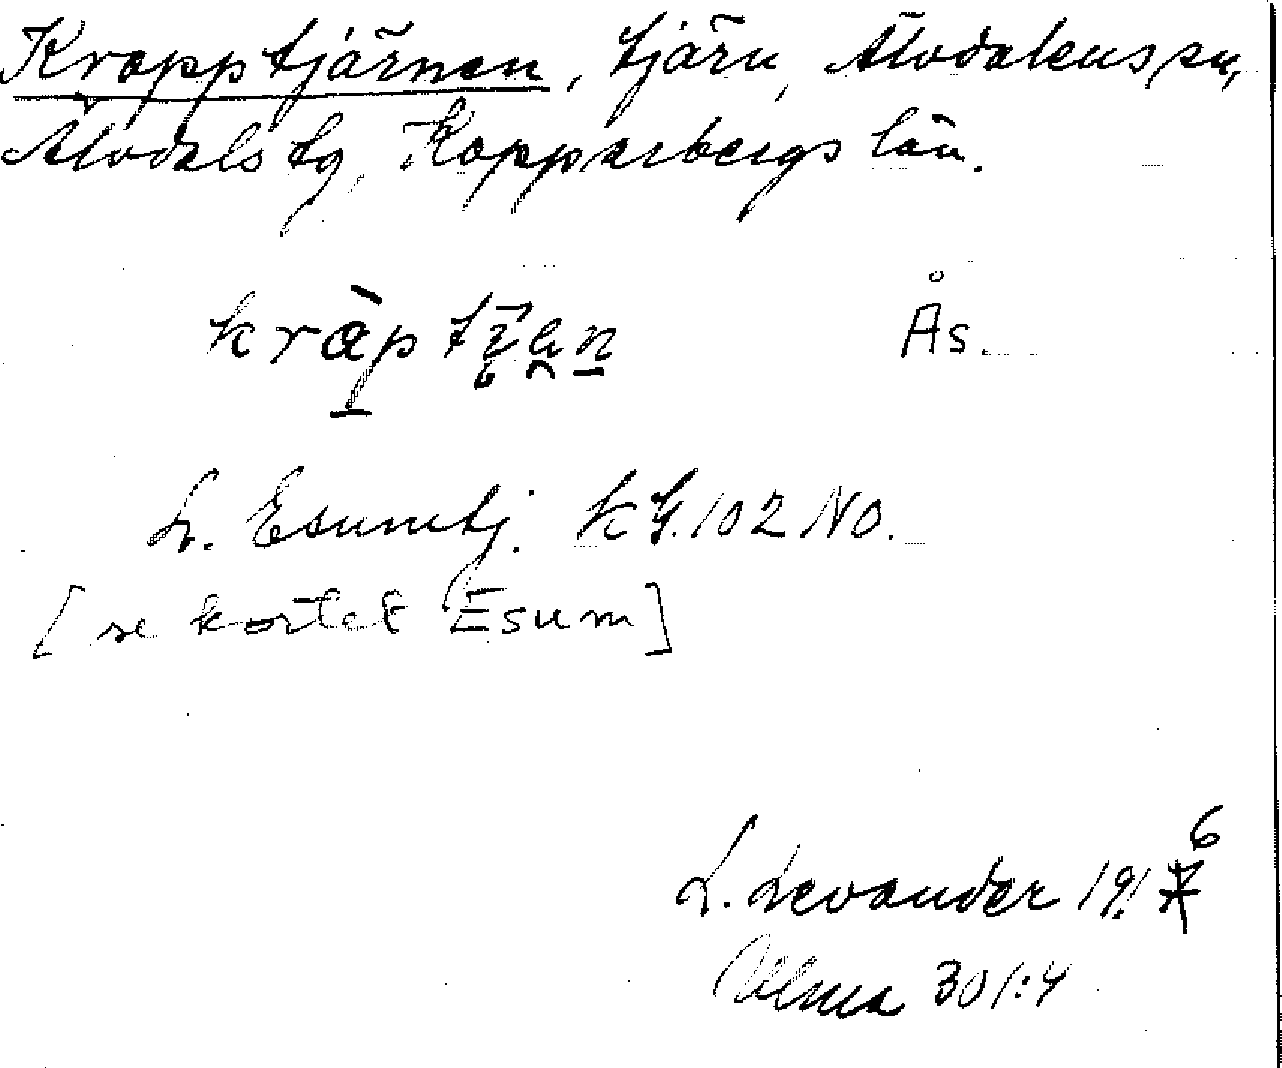 Kropptjärnen, tjärn, Älvdalens sn,
Älvdals tg, Kopparbergs län.
kràp Ås.
L. Esumtj. k G.102 NO.
[se kortet Esum]
6
L. Levander 1917
Ulma 301:4